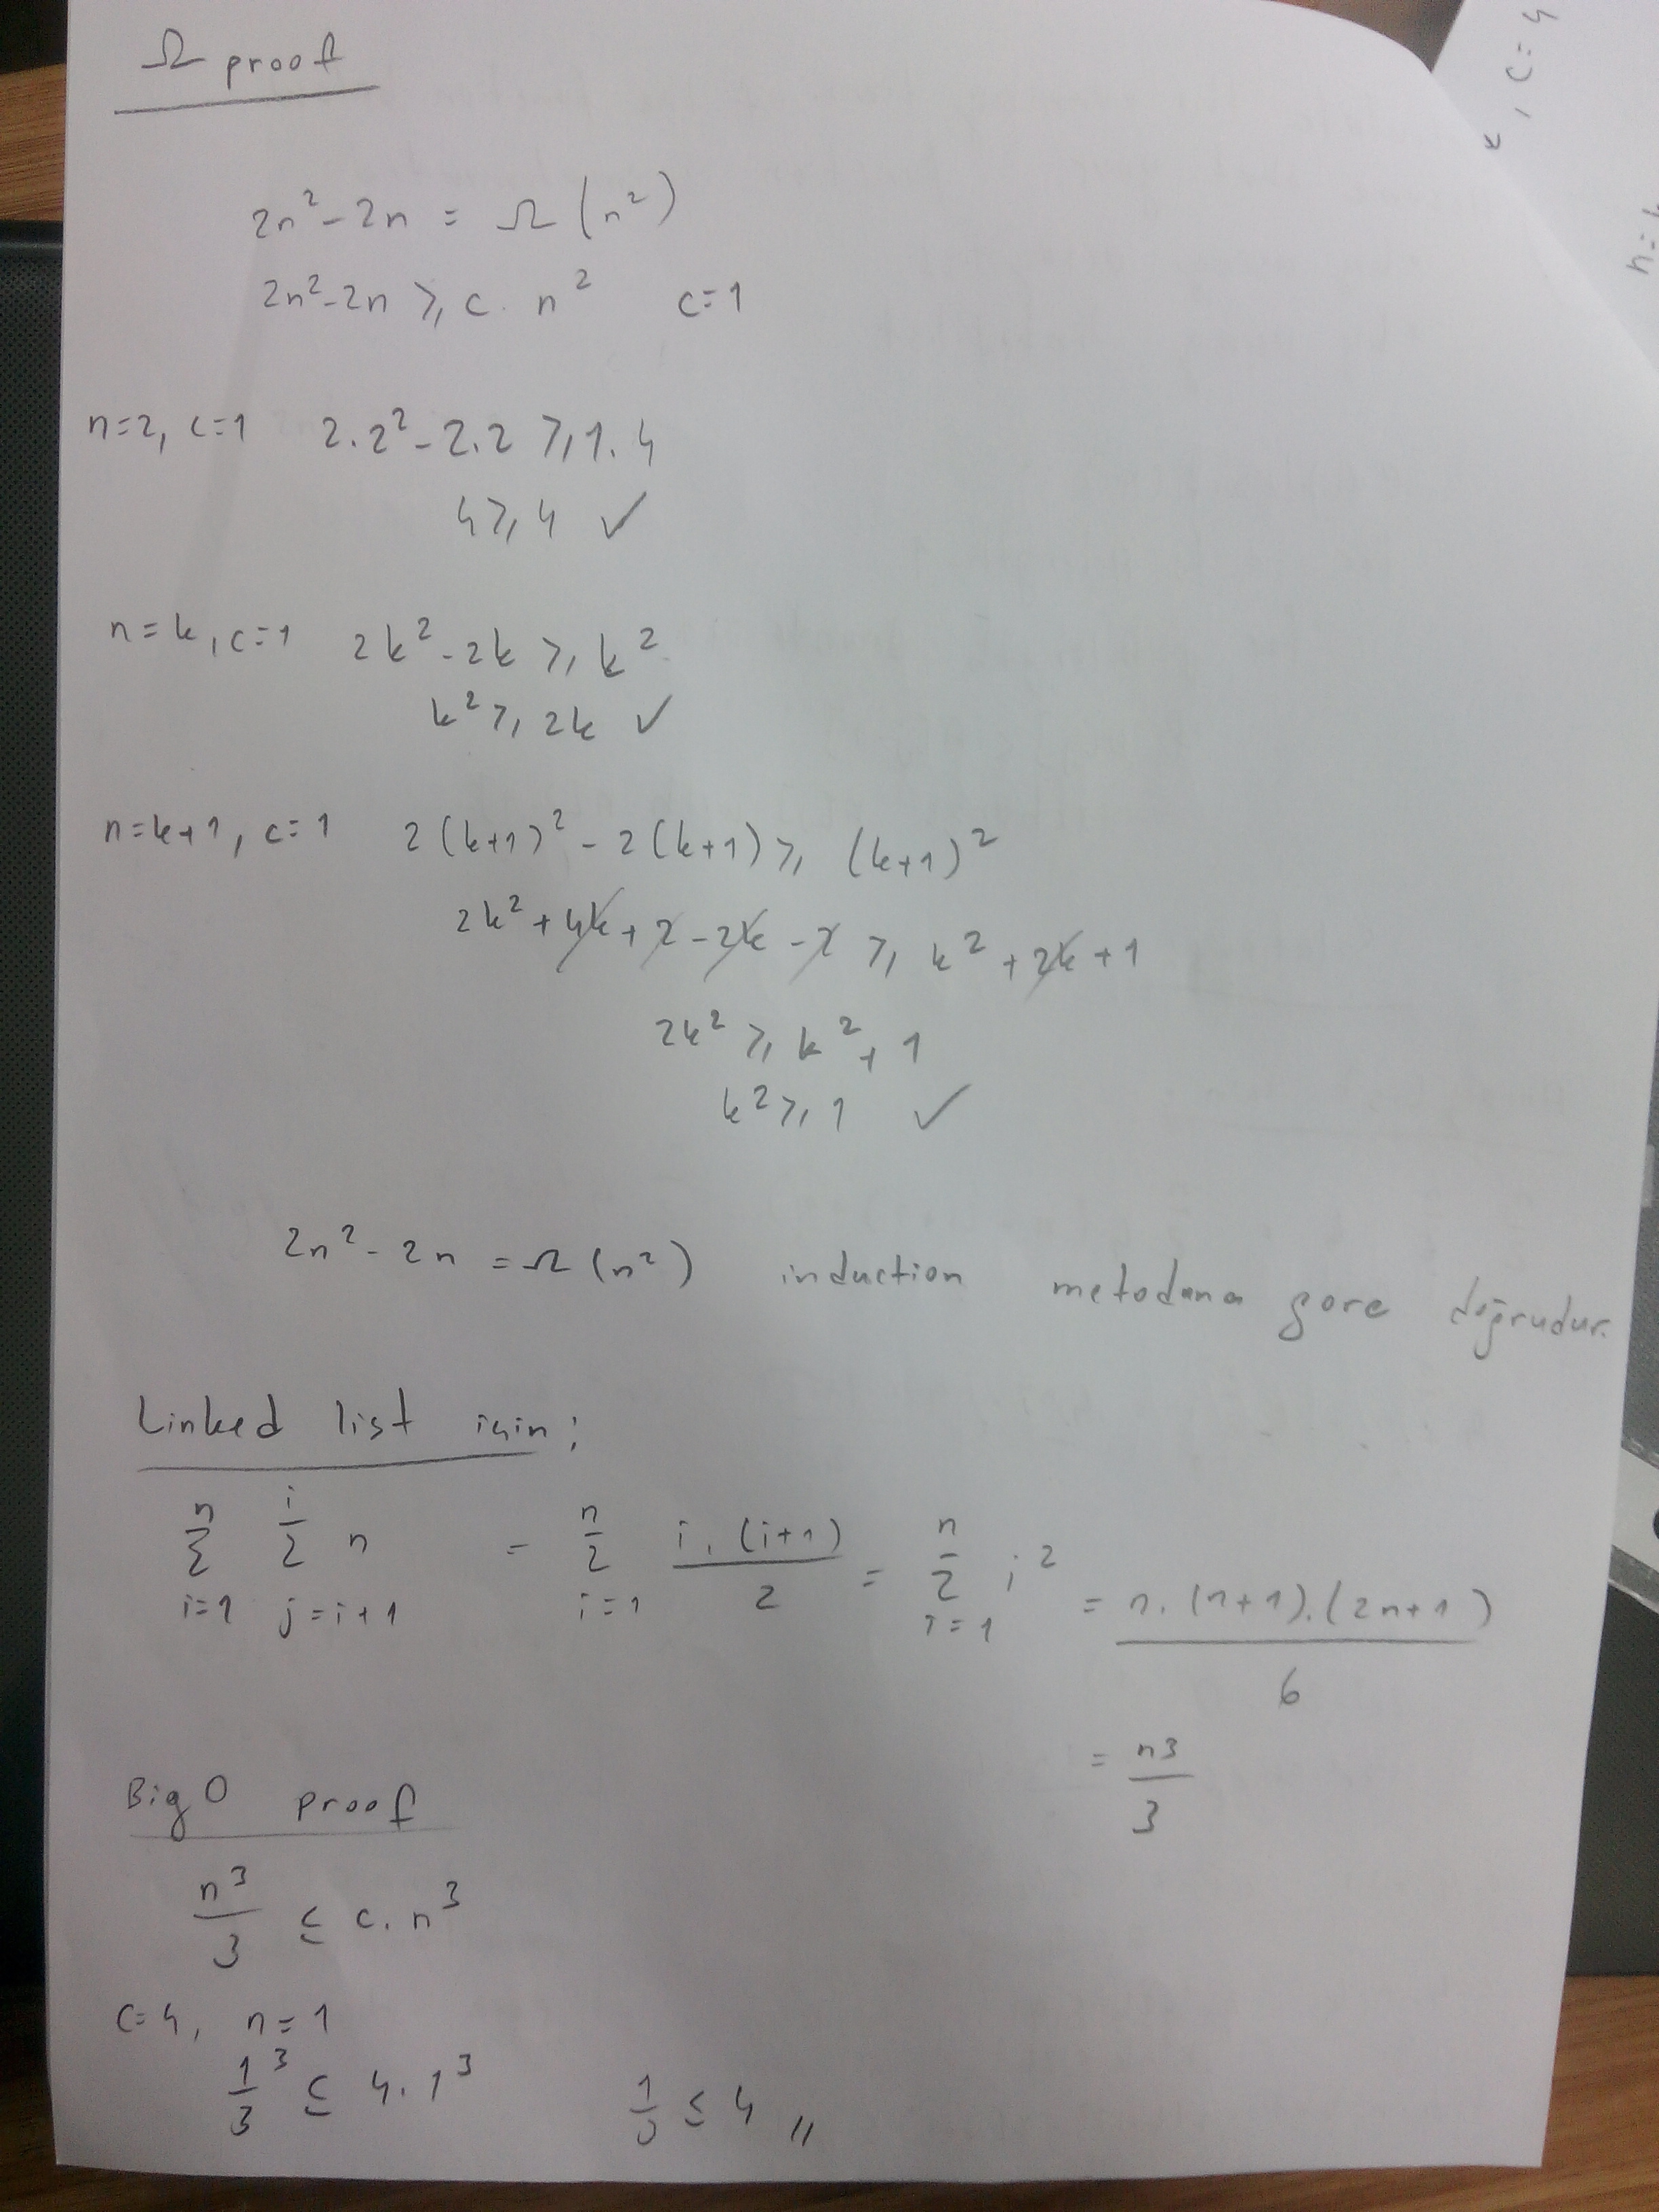 Ω proof
2n² - 2n = Ω (n²)
2n² - 2n ≥ c. n² c=1
n=2, c=1 2.2² - 2.2 ≥ 1.4
4 ≥ 4 ✓
n=k, c=1 2k² - 2k ≥ k²
k² ≥ 2k ✓
n=k+1, c=1 2(k+1)² - 2(k+1) ≥ (k+1)²
2k² + 4k + 2 - 2k - 2 ≥ k² + 2k + 1
2k² ≥ k² + 1
k² ≥ 1 ✓
2n² - 2n = Ω (n²) induction metoduna göre doğrudur.
Linked list için:
∑_{i=1}^{n} ∑_{j=i+1}^{i} n = ∑_{i=1}^{n} i.(i+1)/2 = ∑_{i=1}^{n} i² = n.(n+1).(2n+1)/6
= n3/3
Big O proof
n³/3 ≤ c. n³
c=4, n=1
1³/3 ≤ 4.1³ 1/3 ≤ 4 //
, c=4
n=